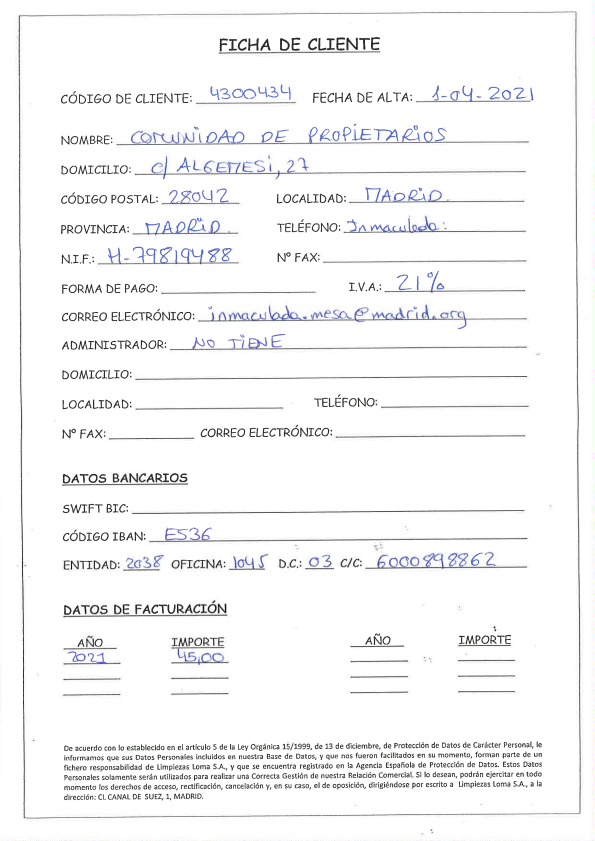 FICHA DE CLIENTE
CÓDIGO DE CLIENTE: 4300434 FECHA DE ALTA: 1-04-2021
NOMBRE: COMUNIDAD DE PROPIETARIOS
DOMICILIO: c/ ALGEMESI, 27
CÓDIGO POSTAL: 28042 LOCALIDAD: MADRID.
PROVINCIA: MADRID. TELÉFONO: Inmaculada:
N.I.F.: H-79819488 Nº FAX:
FORMA DE PAGO: I.V.A.: 21%
CORREO ELECTRÓNICO: inmaculada.mesa@madrid.org
ADMINISTRADOR: NO TIENE
DOMICILIO:
LOCALIDAD: TELÉFONO:
Nº FAX: CORREO ELECTRÓNICO:
DATOS BANCARIOS
SWIFT BIC:
CÓDIGO IBAN: ES36
ENTIDAD: 2038 OFICINA: 1045 D.C.: 03 C/C: 6000898862
DATOS DE FACTURACIÓN
AÑO IMPORTE AÑO IMPORTE
2021 45,00
De acuerdo con lo establecido en el artículo 5 de la Ley Orgánica 15/1999, de 13 de diciembre, de Protección de Datos de Carácter Personal, le
informamos que sus Datos Personales incluidos en nuestra Base de Datos, y que nos fueron facilitados en su momento, forman parte de un
fichero responsabilidad de Limpiezas Loma S.A., y que se encuentra registrado en la Agencia Española de Protección de Datos. Estos Datos
Personales solamente serán utilizados para realizar una Correcta Gestión de nuestra Relación Comercial. Si lo desean, podrán ejercitar en todo
momento los derechos de acceso, rectificación, cancelación y, en su caso, el de oposición, dirigiéndose por escrito a Limpiezas Loma S.A., a la
dirección: CL CANAL DE SUEZ, 1, MADRID.